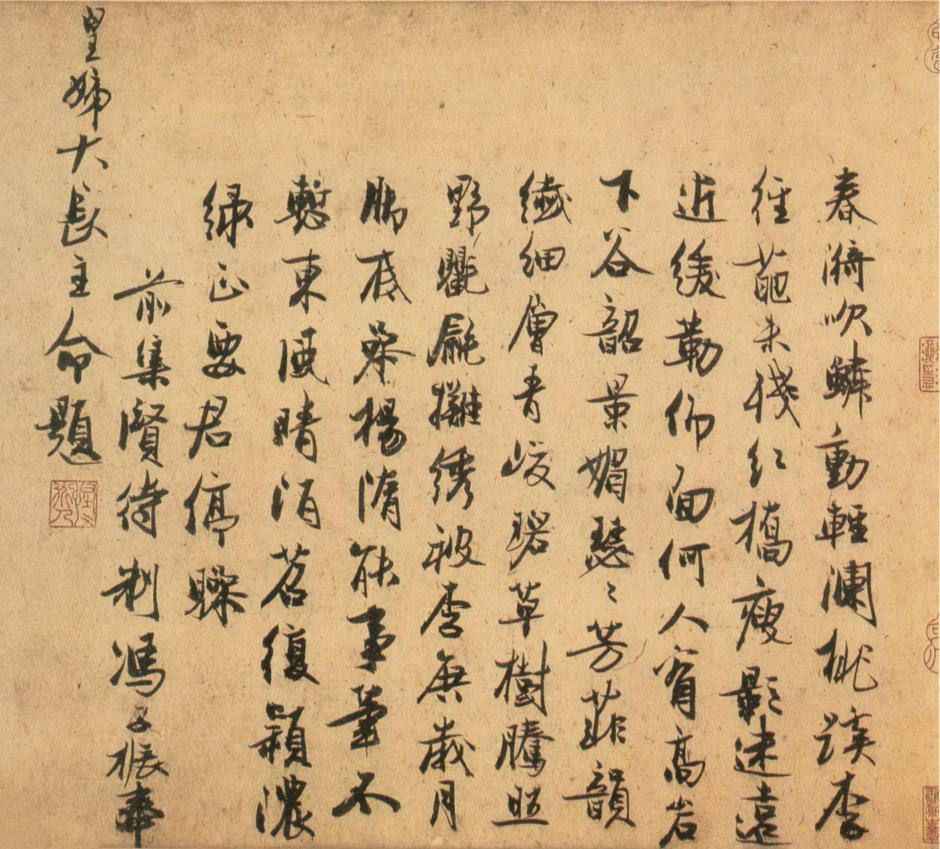 春漪吹鱗動輕瀾桃蹊李
徑葩未殘紅橋瘦影迷遠
近緩勒仰面何人看高岩
下谷韶景媚瑟〻芳菲韻
纖細層青峻碧草樹騰照
野氍毹攤綉被李唐歲月
腳底參楊隋能事筆不
慙東風晴陌苕復穎濃
綠正要君停驂
前集賢待制馮子振奉
皇姊大長主命題